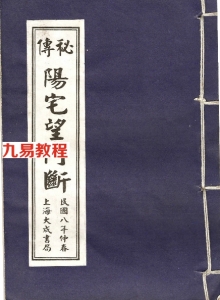 秘傳
陽宅望門斷
民國八年仲春
上海大成書局
九易教程
www.books99.com